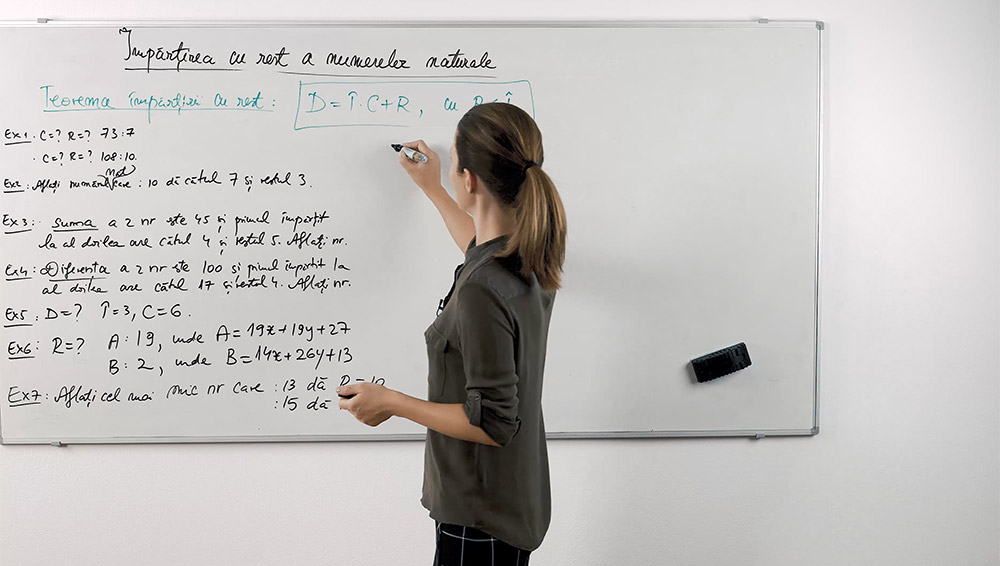 Împărțirea cu rest a numerelor naturale
Teorema împărțirii cu rest :
D = Î · C + R , cu
Ex1 · C=? R=? 73:7
· C=? R=? 108:10.
Ex2 : Aflați numărul nat care : 10 dă câtul 7 și restul 3.
Ex3 : Suma a 2 nr este 45 și primul împărțit
la al doilea are câtul 4 și restul 5. Aflați nr.
Ex4 : Diferența a 2 nr este 100 și primul împărțit la
al doilea are câtul 17 și restul 4. Aflați nr.
Ex5 : D=? Î=3, C=6.
Ex6 : R=? A : 19, unde A=19x+19y+27
B : 2, unde B=14x+26y+13
Ex7 : Aflați cel mai mic nr care : 13 dă R=10
: 15 dă